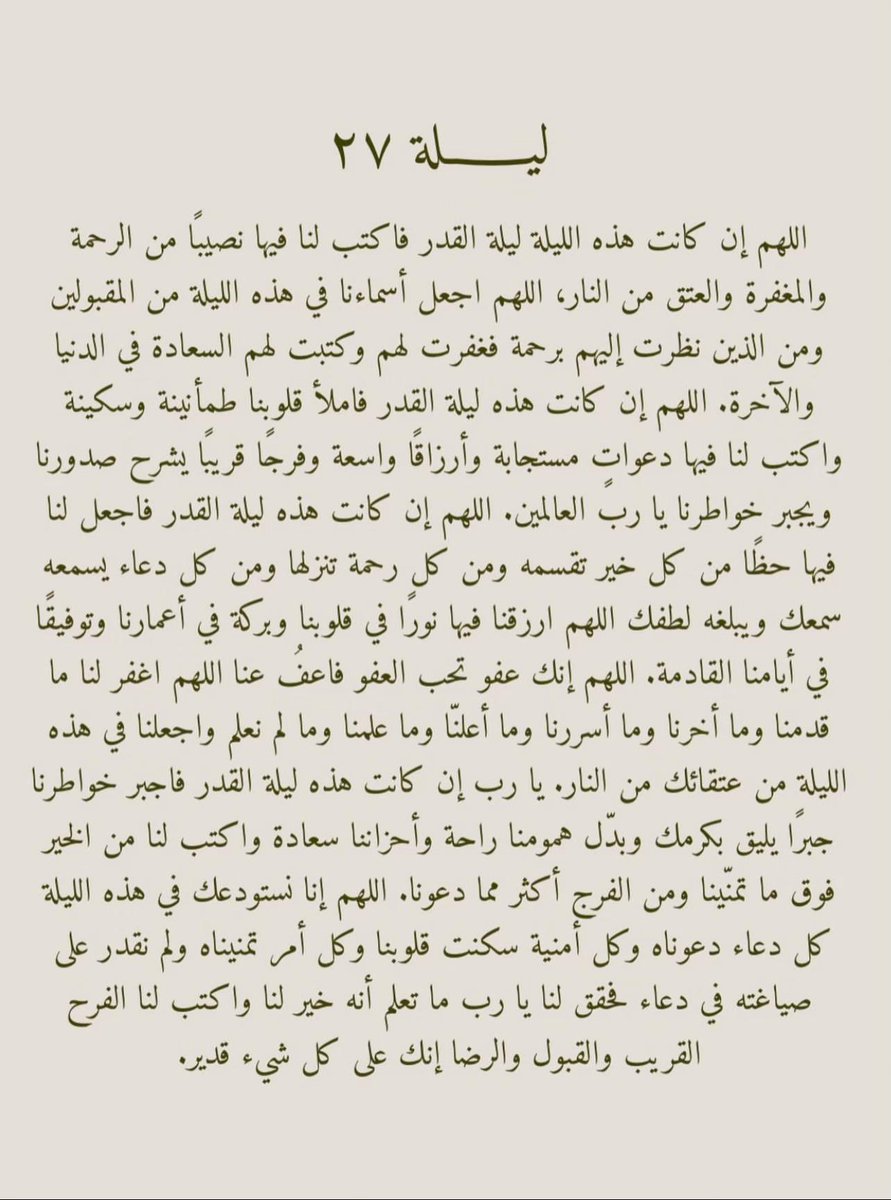 ليـــــلة ٢٧
اللهم إن كانت هذه الليلة ليلة القدر فاكتب لنا فيها نصيبًا من الرحمة
والمغفرة والعتق من النار، اللهم اجعل أسماءنا في هذه الليلة من المقبولين
ومن الذين نظرت إليهم برحمة فغفرت لهم وكتبت لهم السعادة في الدنيا
والآخرة. اللهم إن كانت هذه ليلة القدر فاملأ قلوبنا طمأنينة وسكينة
واكتب لنا فيها دعواتٍ مستجابة وأرزاقًا واسعة وفرجًا قريبًا يشرح صدورنا
ويجبر خواطرنا يا ربّ العالمين. اللهم إن كانت هذه ليلة القدر فاجعل لنا
فيها حظًا من كل خير تقسمه ومن كل رحمة تنزلها ومن كل دعاء يسمعه
سمعك ويبلغه لطفك اللهم ارزقنا فيها نورًا في قلوبنا وبركة في أعمارنا وتوفيقًا
في أيامنا القادمة. اللهم إنك عفو تحب العفو فاعفُ عنا اللهم اغفر لنا ما
قدمنا وما أخرنا وما أسررنا وما أعلنّا وما علمنا وما لم نعلم واجعلنا في هذه
الليلة من عتقائك من النار. يا رب إن كانت هذه ليلة القدر فاجبر خواطرنا
جبرًا يليق بكرمك وبدّل همومنا راحة وأحزاننا سعادة واكتب لنا من الخير
فوق ما تمنّينا ومن الفرج أكثر مما دعونا. اللهم إنا نستودعك في هذه الليلة
كل دعاء دعوناه وكل أمنية سكنت قلوبنا وكل أمر تمنيناه ولم نقدر على
صياغته في دعاء فحقق لنا يا رب ما تعلم أنه خير لنا واكتب لنا الفرح
القريب والقبول والرضا إنك على كل شيء قدير.